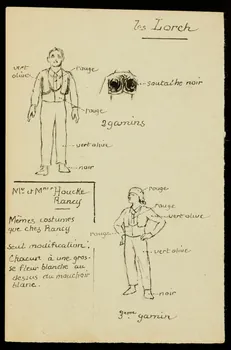 les Lorch
vert olive
rouge
soutache noir
rouge
2 gamins
vert olive
noir
Mr et Mme Houcke Rancy
Mêmes costumes
que chez Rancy
Seul modification:
Chacun à une gros-
se fleur blanche au
dessus du mouchoir
blanc.
rouge
rouge
vert olive
rouge
vert olive
noir
3ème gamin